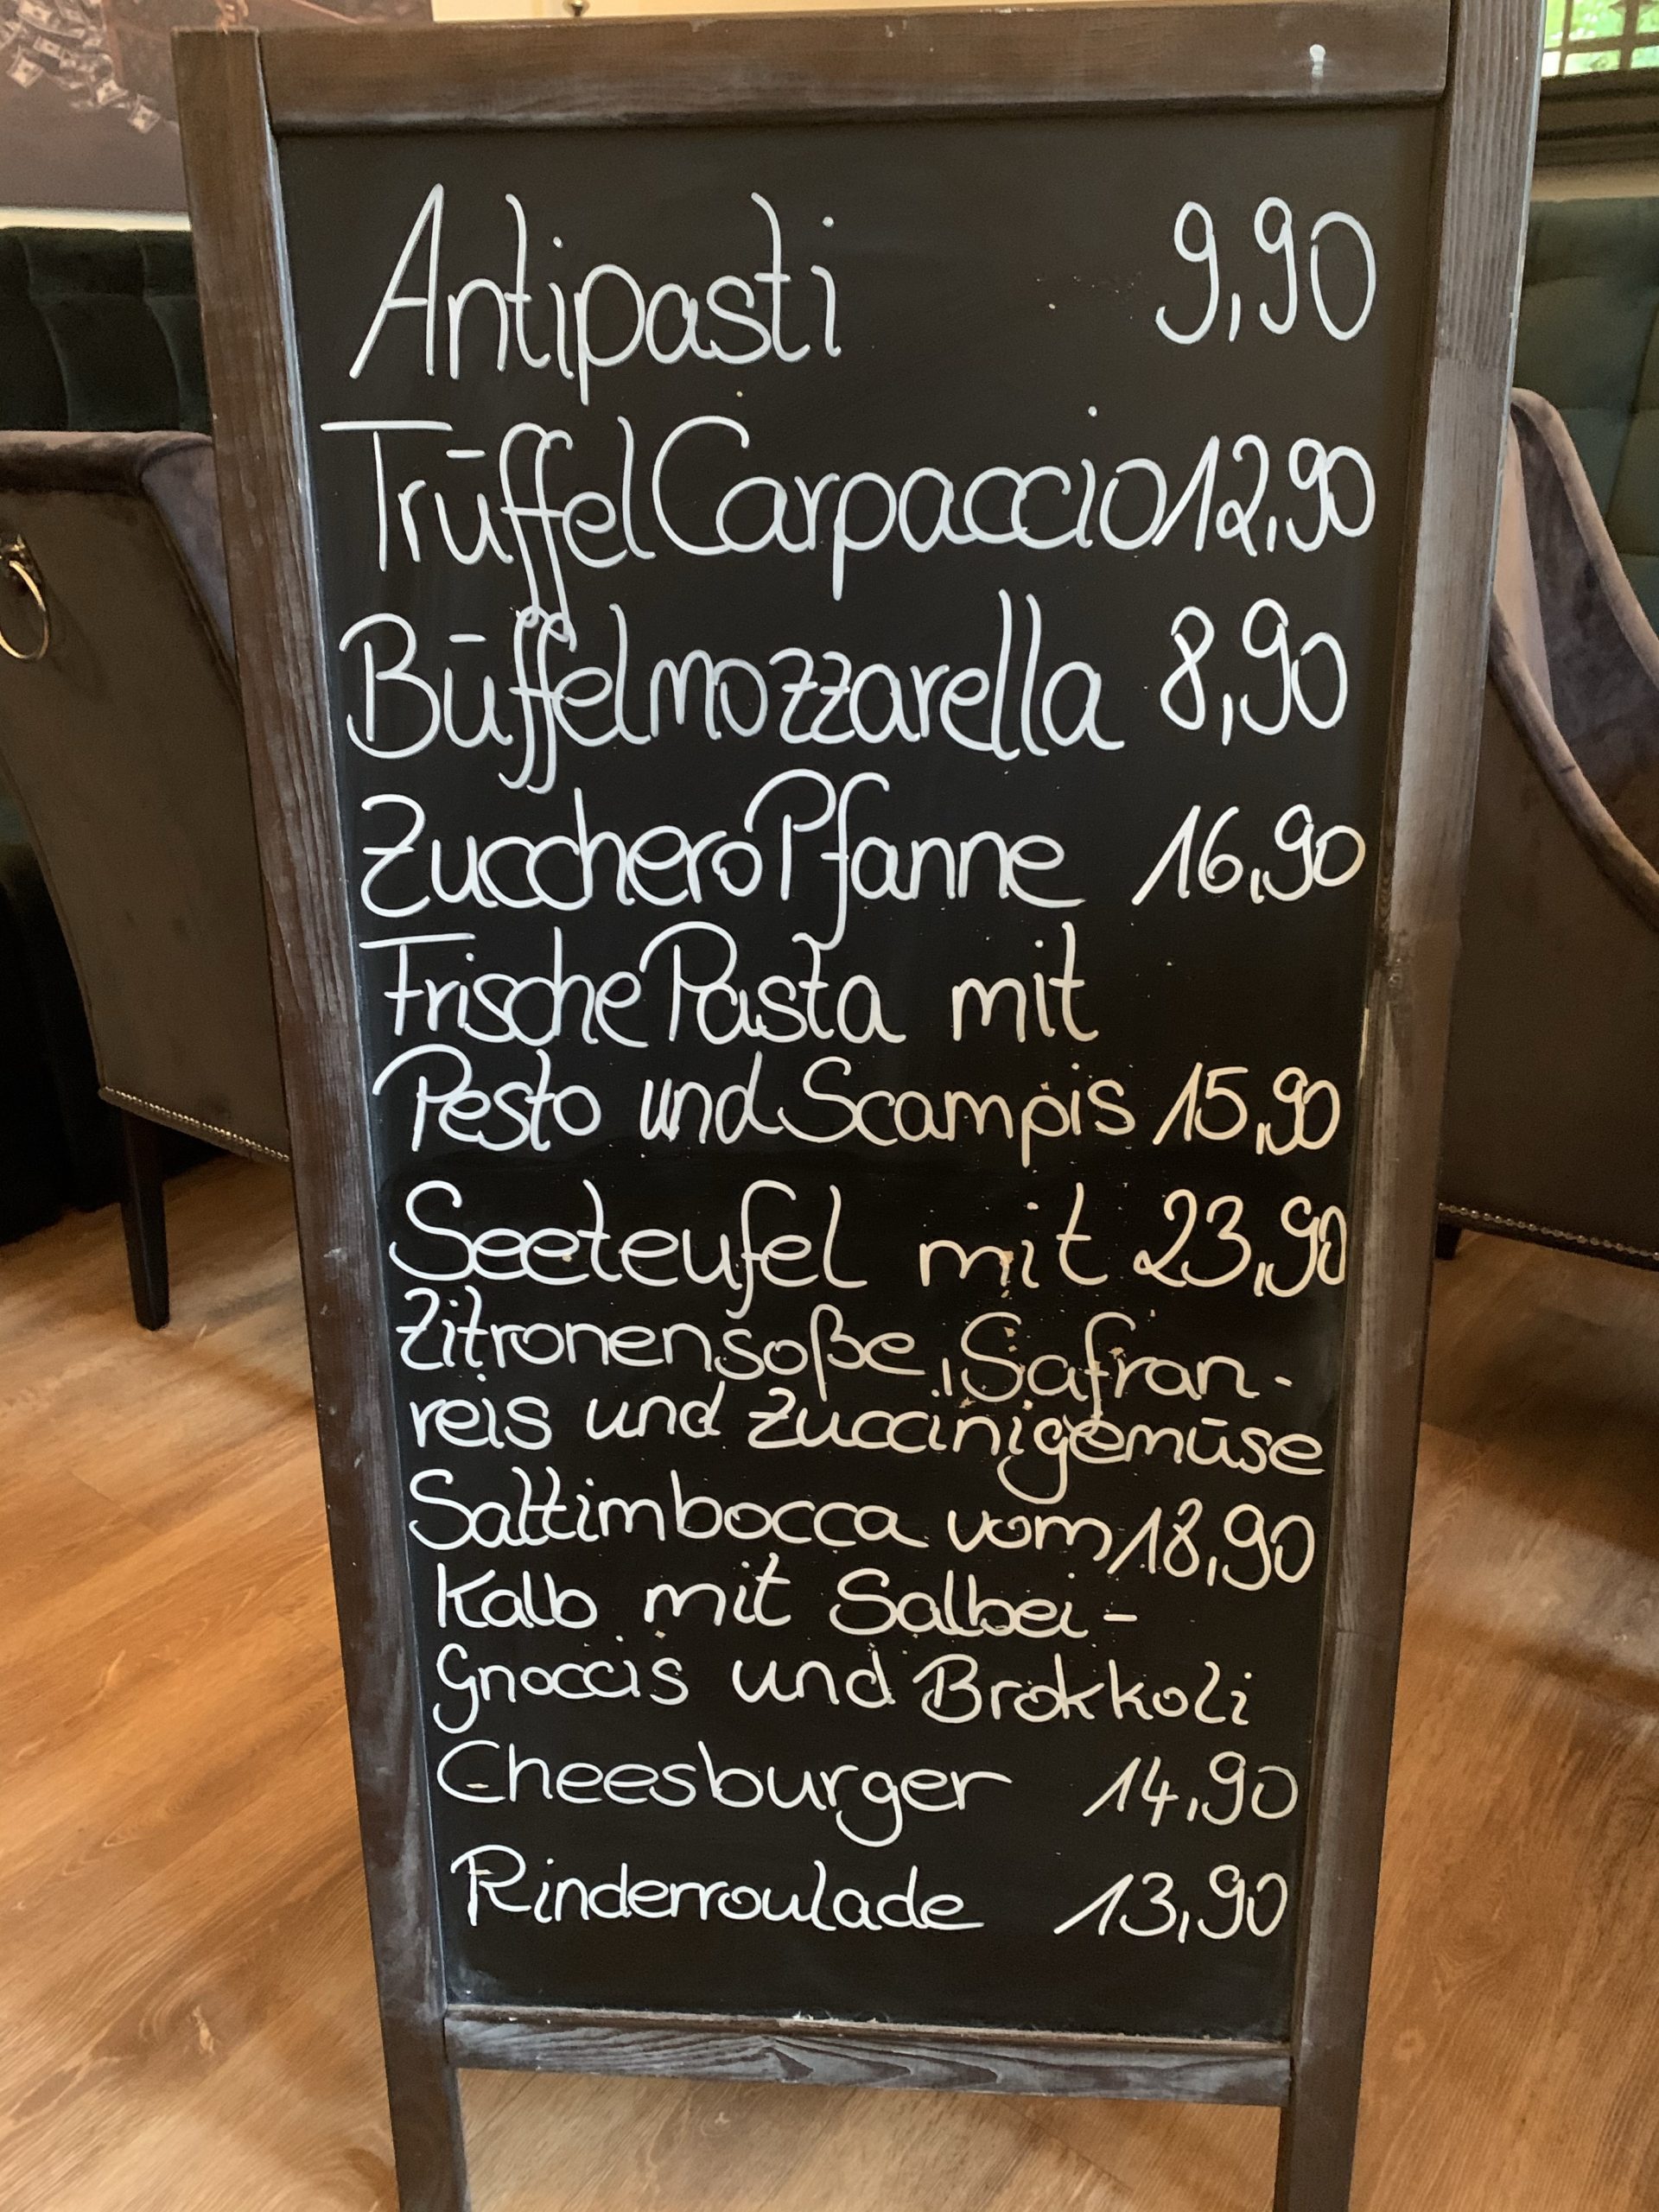 Antipasti 9,90
Trüffel Carpaccio 12,90
Büffelmozzarella 8,90
Zucchero Pfanne 16,90
Frische Pasta mit
Pesto und Scampis 15,90
Seeteufel mit 23,90
Zitronensoße, Safran-
reis und Zuccinigemüse
Saltimbocca vom 18,90
Kalb mit Salbei-
Gnoccis und Brokkoli
Cheesburger 14,90
Rinderroulade 13,90